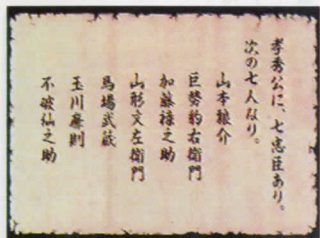 孝秀公に、七忠臣あり。
次の七人なり。
山本狼介
巨勢豹右衛門
加藤禄之助
山形文左衛門
馬場武蔵
玉川廉則
不破仙之助